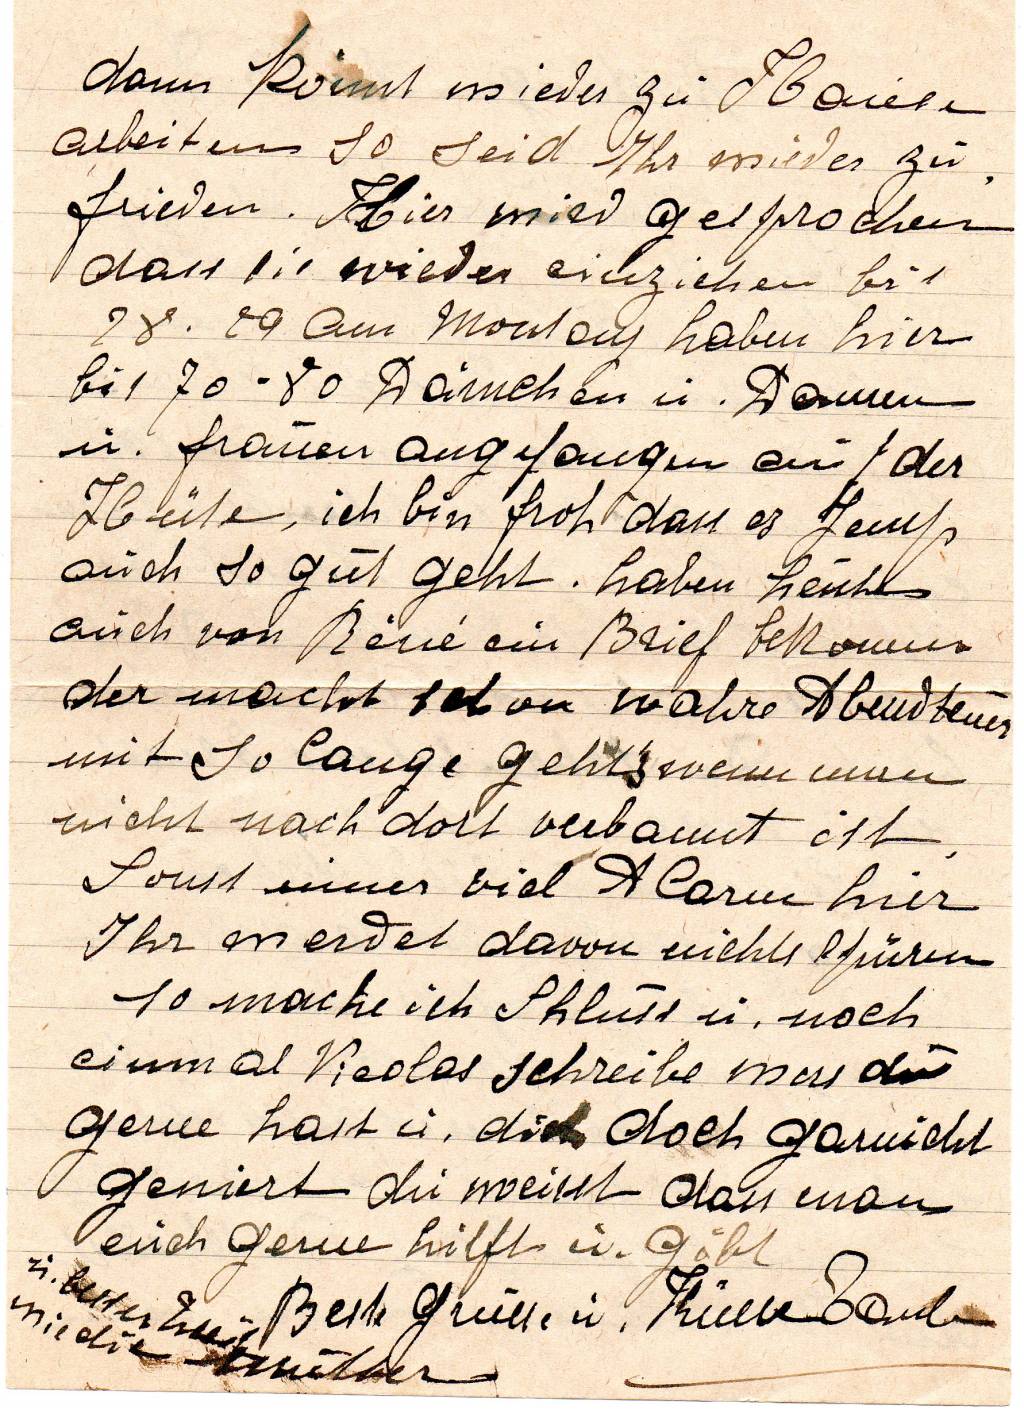 dann könnt wieder zu Hause
arbeiten so seid Ihr wieder zu
frieden. Hier wird gesprochen
dass sie wieder einziehen bis
28. 29 am Montag haben hier
bis 70-80 Dämchen u. Damen
u. frauen angefangen auf der
Hüte, ich bin froh dass es Jemp
auch so gut geht. haben heute
auch von Réné ein Brief bekommen
der macht schon wahre Abendteuer
mit so lange geht's wenn man
nicht nach dort verbannt ist,
Sonst immer viel Alarm hier
Ihr werdet davon nichts spüren
so mache ich Shluss u. noch
einmal Nicolas schreibe was du
gerne hast u. dich doch garnicht
geniert du weisst dass man
euch gerne hilft u. gibt
Beste Grüsse u. Küsse
u. besser
wie die Mutter